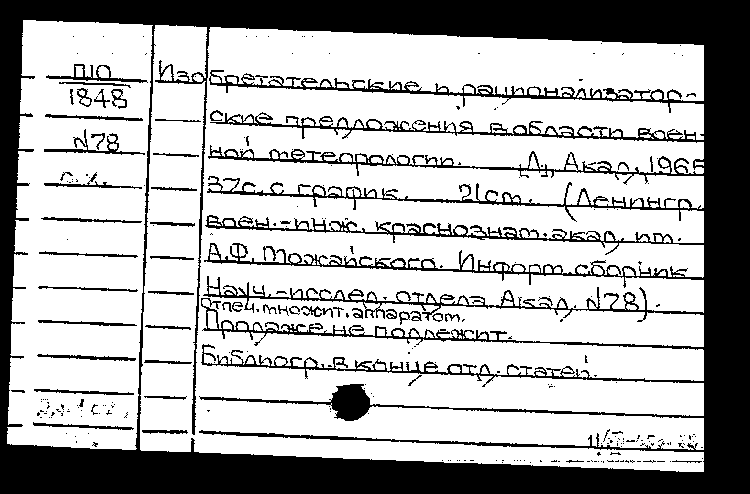 П10
1848
N78
о.х.
Изобретательские и рационализатор-
ские предложения в области воен-
ной метеорологии. „Л", Акад., 1965
37с. с график. 21см. (Ленингр.
воен.-инж. краснознам. акад. им.
А.Ф. Можайского. Информ. сборник
Науч.-исслед. отдела Акад. N78).
Отпеч. множит. аппаратом.
Продаже не подлежит.
Библиогр. в конце отд. статей.